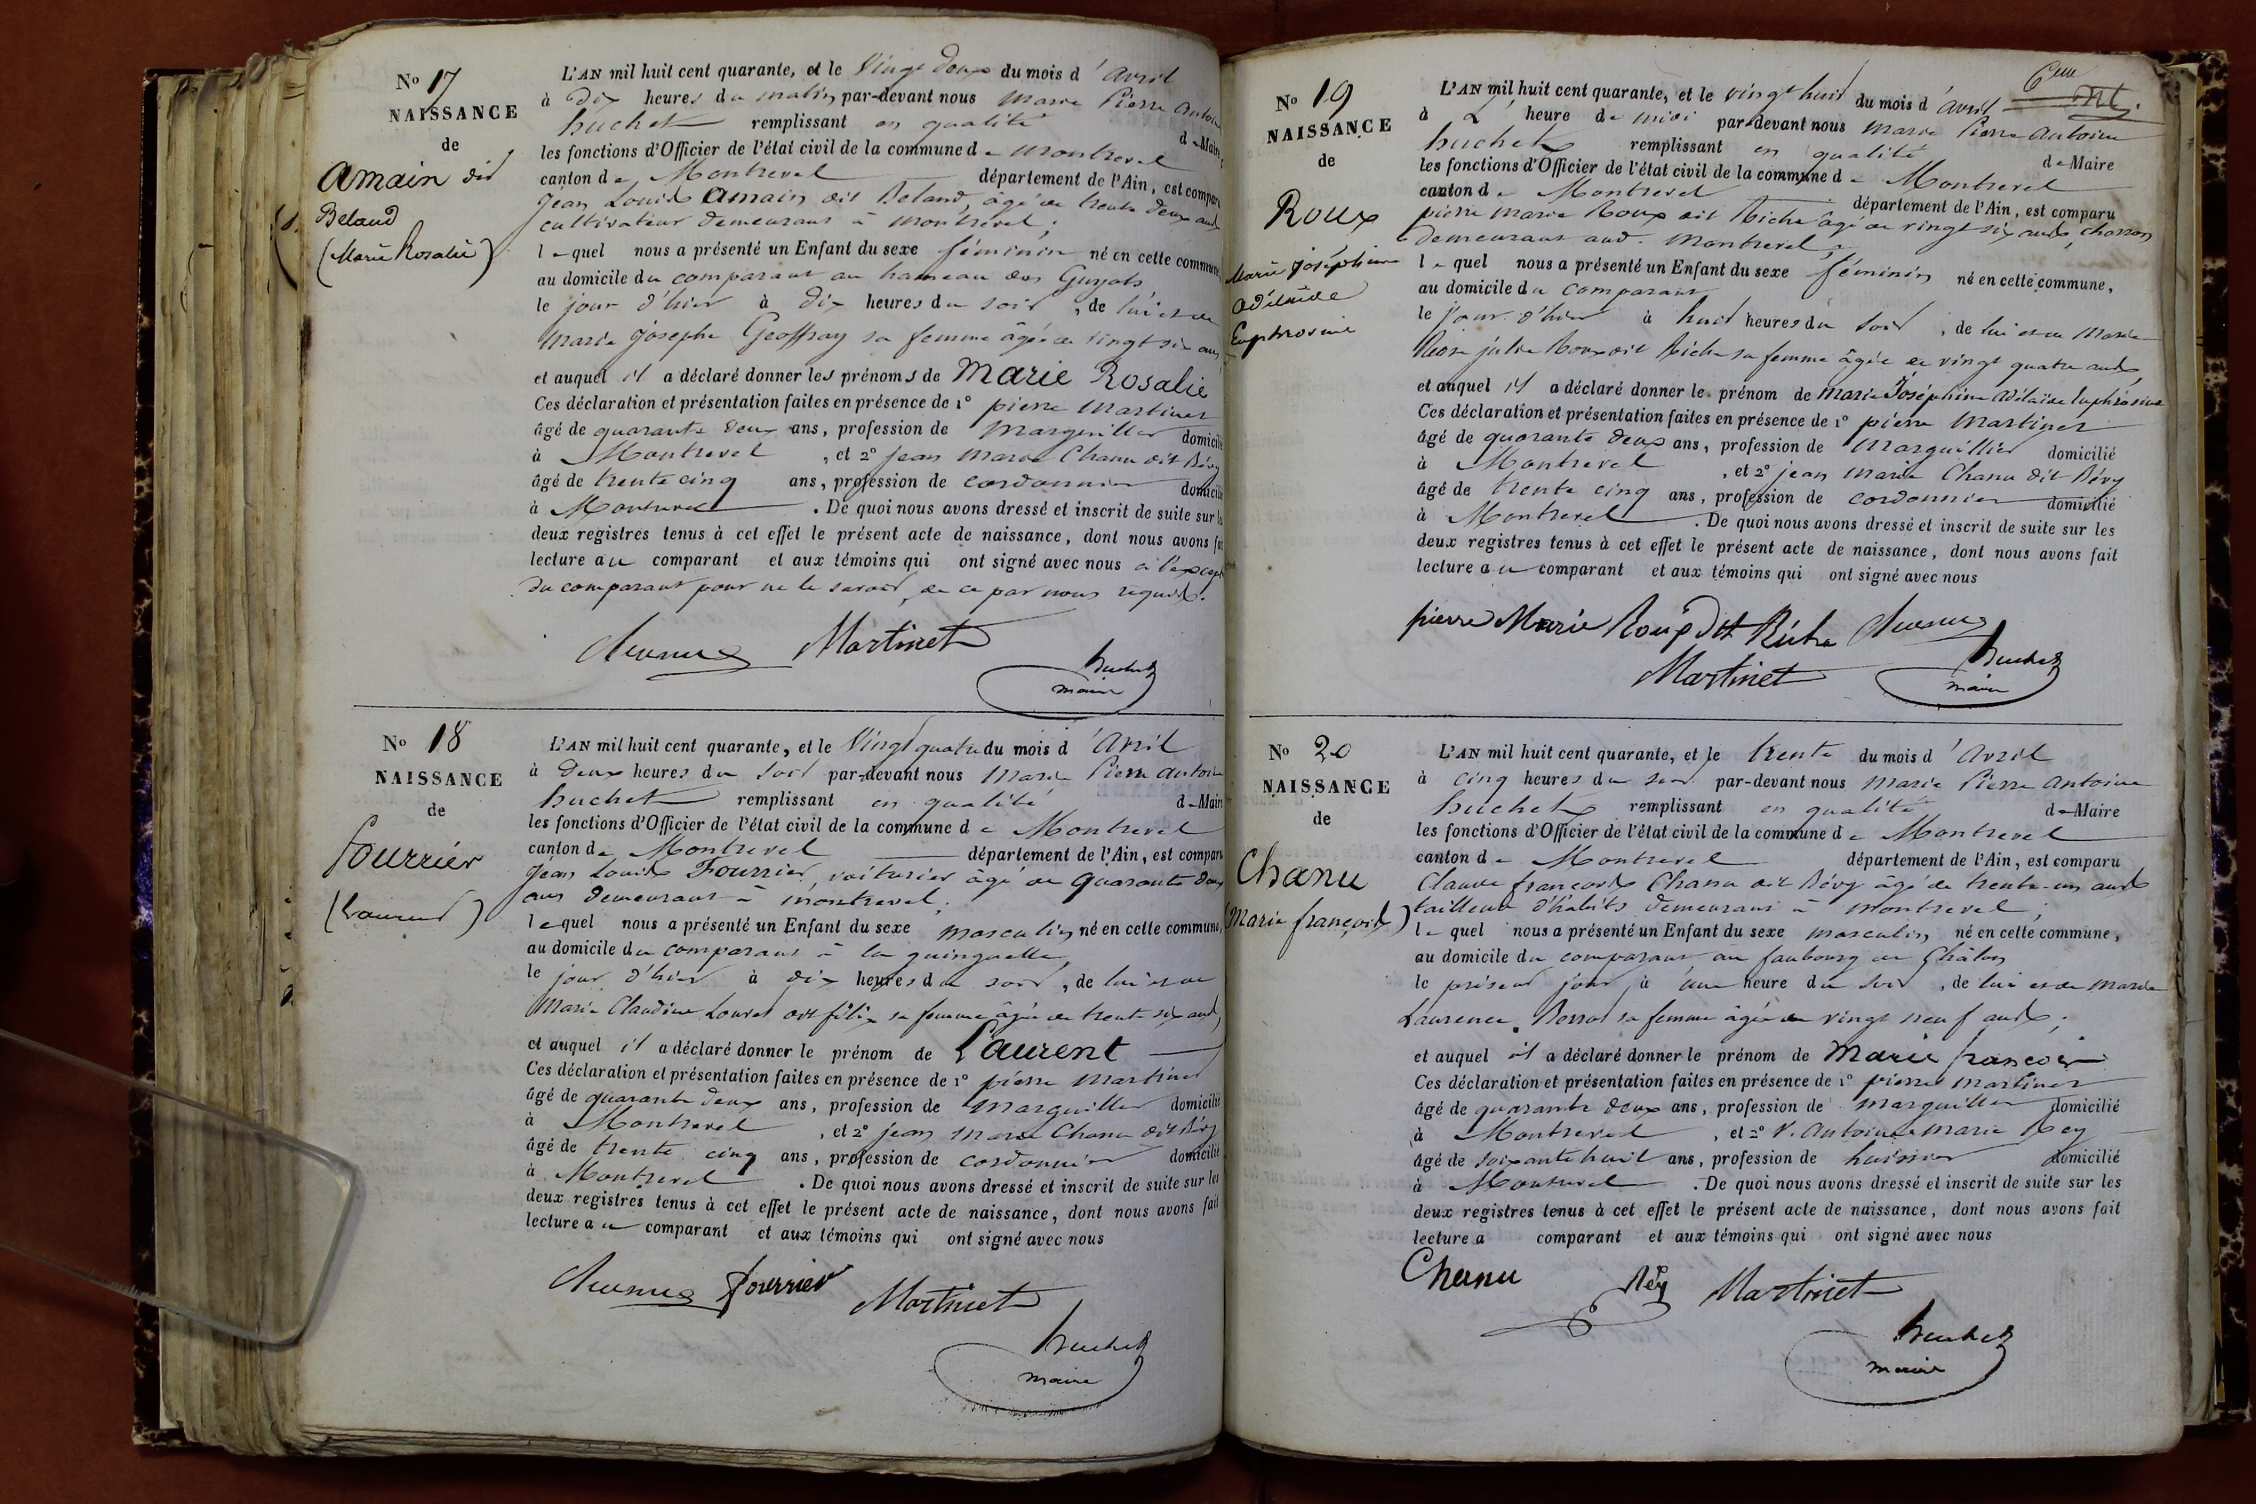 No 17
NAISSANCE
de
Amain dit
Beland
(Marie Rosalie)
L'AN mil huit cent quarante, et le Vingt deux du mois d'avril
à dix heures du matin, par-devant nous Marie Pierre Antoine
huchet remplissant en qualité de Maire
les fonctions d'Officier de l'état civil de la commune de Montrevel
canton de Montrevel département de l'Ain, est comparu
Jean Louis Amain dit Beland, âgé de trente deux ans
cultivateur demeurant à Montrevel;
lequel nous a présenté un Enfant du sexe féminin né en cette commune,
au domicile du comparant au hameau des Guyots
le jour d'hier à dix heures du soir, de lui et de
Marie Josephe Geoffray sa femme âgée de vingt six ans
et auquel il a déclaré donner les prénoms de Marie Rosalie
Ces déclaration et présentation faites en présence de 1° pierre Martinet
âgé de quarante deux ans, profession de Marguillier domicilié
à Montrevel, et 2° jean Marie Chanu dit Bévy
âgé de trente cinq ans, profession de cordonnier domicilié
à Montrevel. De quoi nous avons dressé et inscrit de suite sur les
deux registres tenus à cet effet le présent acte de naissance, dont nous avons fait
lecture au comparant et aux témoins qui ont signé avec nous à l'except
du comparant pour ne le savoir, de ce par nous requis.
Martinet
huchet
maire
No 18
NAISSANCE
de
Fourrier
(Laurent)
L'AN mil huit cent quarante, et le Vingt quatre du mois d'Avril
à deux heures du soir par-devant nous Marie Pierre Antoine
huchet remplissant en qualité de Maire
les fonctions d'Officier de l'état civil de la commune de Montrevel
canton de Montrevel département de l'Ain, est comparu
Jean Louis Fourrier, voiturier âgé de quarante deux
ans demeurant à Montrevel;
lequel nous a présenté un Enfant du sexe masculin né en cette commune,
au domicile du comparant à la guinguette,
le jour d'hier à dix heures du soir, de lui et de
Marie Claudine Louvet dit félix sa femme âgée de trente six ans,
et auquel il a déclaré donner le prénom de Laurent
Ces déclaration et présentation faites en présence de 1° pierre Martinet
âgé de quarante deux ans, profession de Marguillier domicilié
à Montrevel, et 2° jean Marie Chanu dit Bévy
âgé de trente cinq ans, profession de cordonnier domicilié
à Montrevel. De quoi nous avons dressé et inscrit de suite sur les
deux registres tenus à cet effet le présent acte de naissance, dont nous avons fait
lecture au comparant et aux témoins qui ont signé avec nous
fourrier Martinet
huchet
maire
6eme
No 19
NAISSANCE
de
Roux
Marie Joséphine
Adélaïde
Euphrosine
L'AN mil huit cent quarante, et le vingt huit du mois d'avril
à L' heure de midi par-devant nous Marie Pierre Antoine
huchet remplissant en qualité de Maire
les fonctions d'Officier de l'état civil de la commune de Montrevel
canton de Montrevel département de l'Ain, est comparu
pierre Marie Roux dit Biche âgé de vingt six ans, charron
demeurant aud. Montrevel;
lequel nous a présenté un Enfant du sexe féminin né en cette commune,
au domicile du comparant
le jour d'hier à huit heures du soir, de lui et de Marie
Rose julie Roux dit Biche sa femme âgée de vingt quatre ans,
et auquel il a déclaré donner le prénom de Marie Joséphine Adélaïde Euphrosine
Ces déclaration et présentation faites en présence de 1° pierre Martinet
âgé de quarante deux ans, profession de Marguillier domicilié
à Montrevel, et 2° jean Marie Chanu dit Bévy
âgé de trente cinq ans, profession de cordonnier domicilié
à Montrevel. De quoi nous avons dressé et inscrit de suite sur les
deux registres tenus à cet effet le présent acte de naissance, dont nous avons fait
lecture au comparant et aux témoins qui ont signé avec nous
pierre Marie Roux dit Biche
Martinet
huchet
maire
No 20
NAISSANCE
de
Chanu
(Marie françois)
L'AN mil huit cent quarante, et le trente du mois d'Avril
à cinq heures du soir par-devant nous Marie Pierre Antoine
huchet remplissant en qualité de Maire
les fonctions d'Officier de l'état civil de la commune de Montrevel
canton de Montrevel département de l'Ain, est comparu
Claude françois Chanu dit Bévy âgé de trente-un ans
tailleur d'habits demeurant à Montrevel;
lequel nous a présenté un Enfant du sexe masculin né en cette commune,
au domicile du comparant au faubourg de Châlon
le présent jour à une heure du soir, de lui et de Marie
Laurence Borrat sa femme âgée de vingt neuf ans;
et auquel il a déclaré donner le prénom de Marie françois
Ces déclaration et présentation faites en présence de 1° pierre Martinet
âgé de quarante deux ans, profession de Marguillier domicilié
à Montrevel, et 2° V. Antoine Marie Rey
âgé de soixante huit ans, profession de huissier domicilié
à Montrevel. De quoi nous avons dressé et inscrit de suite sur les
deux registres tenus à cet effet le présent acte de naissance, dont nous avons fait
lecture a comparant et aux témoins qui ont signé avec nous
Chanu Rey Martinet
huchet
maire